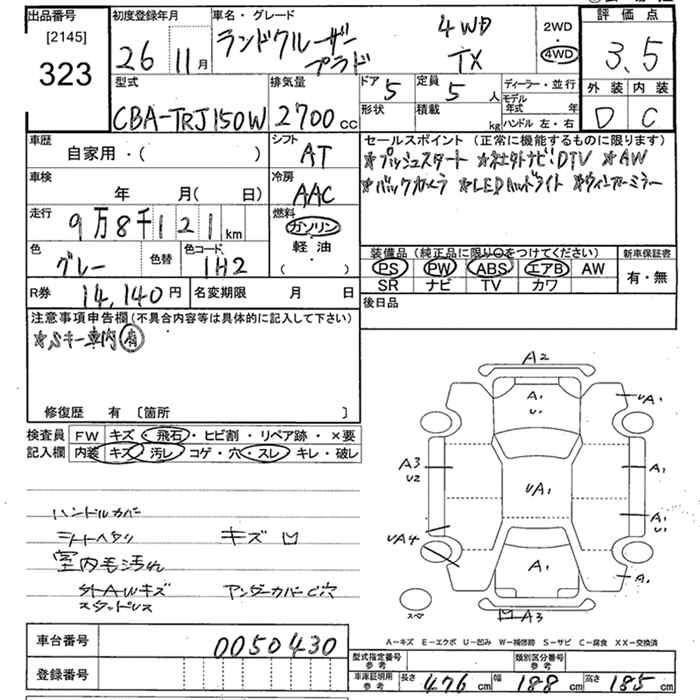 出品番号 初度登録年月 車名・グレード
[2145]
323
26 11月
ランドクルーザー
プラド
4WD
TX
2WD
4WD
評価点
3.5
外装 内装
D C
型式 排気量 ドア 定員 ディーラー・並行
CBA-TRJ150W 2700cc 5 5人
形状 積載 kg
モデル年式 年
ハンドル 左・右
車歴
自家用・( )
シフト
AT
セールスポイント (正常に機能するものに限ります)
★プッシュスタート ★社外ナビDTV ★AW
★バックカメラ ★LEDヘッドライト ★ウィンカーミラー
車検
年 月(日)
冷房
AAC
走行
9万8千121km
燃料
ガソリン
軽油
( ・ )
色 色替 色コード
グレー 1H2
装備品(純正品に限り○をつけてください) 新車保証書
PS PW ABS エアB AW
SR ナビ TV カワ
有・無
R券 14,140円 名変期限 月 日
後日品
注意事項申告欄(不具合内容等は具体的に記入して下さい)
★Sキー車内有
修復歴 有 [箇所 ]
検査員 FW キズ・飛石・ヒビ割・リペア跡・×要
記入欄 内装 キズ 汚レ・コゲ・穴・スレ・キレ・破レ
ハンドルカバー
シートヘタリ キズ 凹
室内毛汚れ
社外AWキズ アンダーカバー穴
スタッドレス
A2
A1
U1
UA1
A3
U2
A1
UA1
A1
U1
UA4
A1
A1
凹A3
スペア
A-キズ E-エクボ U-凹み W-補修跡 S-サビ C-腐食 XX-交換済
車台番号 0050430
登録番号
型式指定番号 参考 類別区分番号 参考
車庫証明用 参考 長さ 476cm 幅 188cm 高さ 185cm